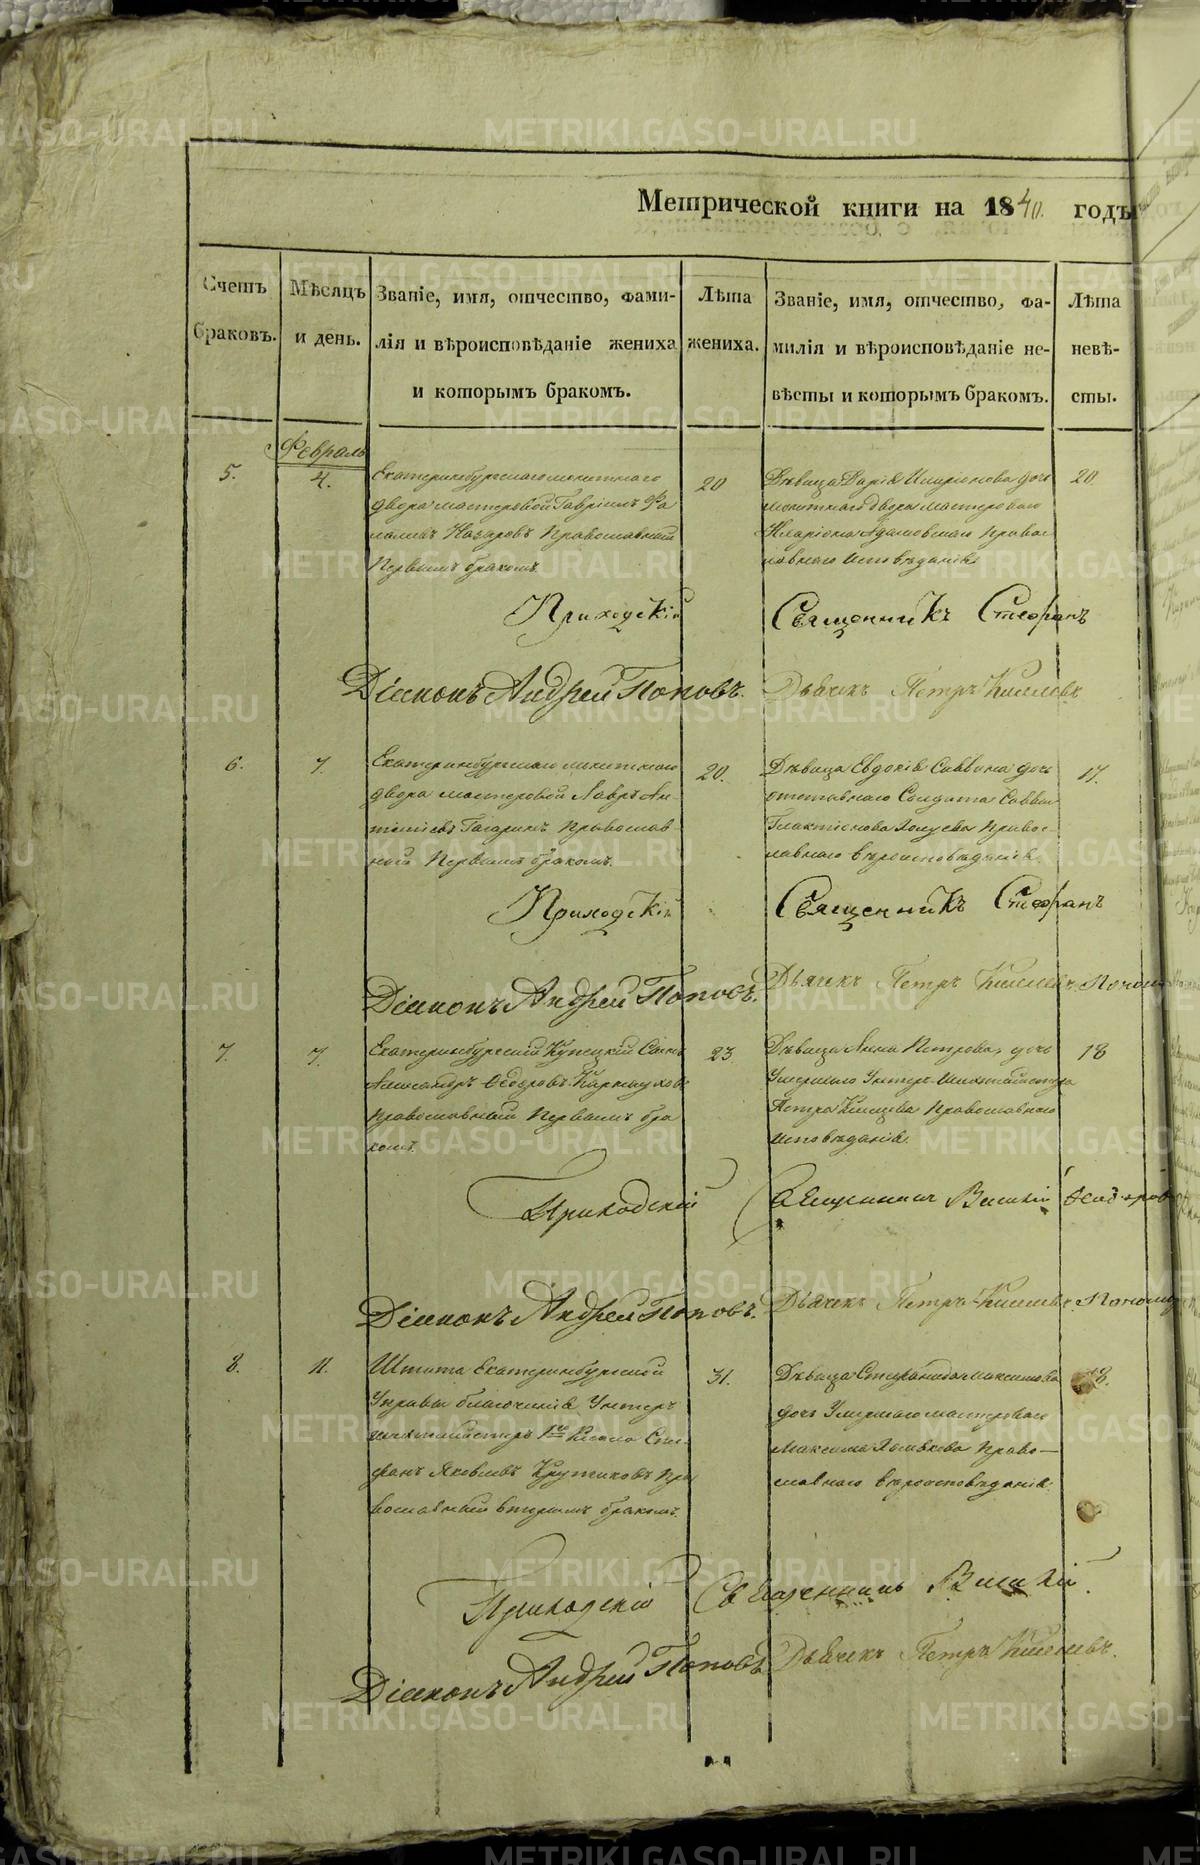 Метрической книги на 1840. годъ
Счетъ браковъ.
Мѣсяцъ и день.
Званіе, имя, отчество, фами-
лія и вѣроисповѣданіе жениха
и которымъ бракомъ.
Лѣта жениха.
Званіе, имя, отчество, фа-
милія и вѣроисповѣданіе не-
вѣсты и которымъ бракомъ.
Лѣта
невѣ-
сты.
Февраль
5.
4.
Екатеринбургскаго монетнаго
двора мастеровой Гавріилъ
Назаровъ Православный
Первымъ бракомъ.
20
Дѣвица Дарія Иларіонова дочь
монетнаго двора мастероваго
Иларіона Православнаго исповѣданія
20
Приходскій Священникъ Стефанъ
Діаконъ Андрей Поповъ. Дьячекъ Петръ Киселевъ
6.
7.
Екатеринбургскаго монетнаго
двора мастеровой Лавръ Ан-
Гагаринъ Православ-
ный Первымъ бракомъ.
20.
Дѣвица Евдокія Саввина дочь
отставнаго Солдата Саввы
Галактіонова Правос-
лавнаго вѣроисповѣданія.
17.
Приходскій Священникъ Стефанъ
Діаконъ Андрей Поповъ. Дьячекъ Петръ Киселевъ.
7.
7.
Екатеринбургскій Купецкій Сынъ
Александръ Ѳедоровъ
Православный Первымъ бра
комъ.
23
Дѣвица Анна Петрова, дочь
Умершаго Унтер-Шихтмейстера
Петра Православнаго
исповѣданія.
18
Приходскій Священникъ
Діаконъ Андрей Поповъ. Дьячекъ Петръ Киселевъ.
8.
11.
Штата Екатеринбургской
Управы благочинія Унтеръ
шихтмейстеръ 1го Класса Сте-
фанъ Яковлевъ Крутиковъ Пра
вославный вторымъ бракомъ.
31.
Дѣвица Степанида Максимова
дочь Умершаго мастероваго
Максима Право-
славнаго вѣроисповѣданія.
18.
Приходскій Священникъ
Діаконъ Андрей Поповъ Дьячекъ Петръ Киселевъ.
METRIKI.GASO-URAL.RU